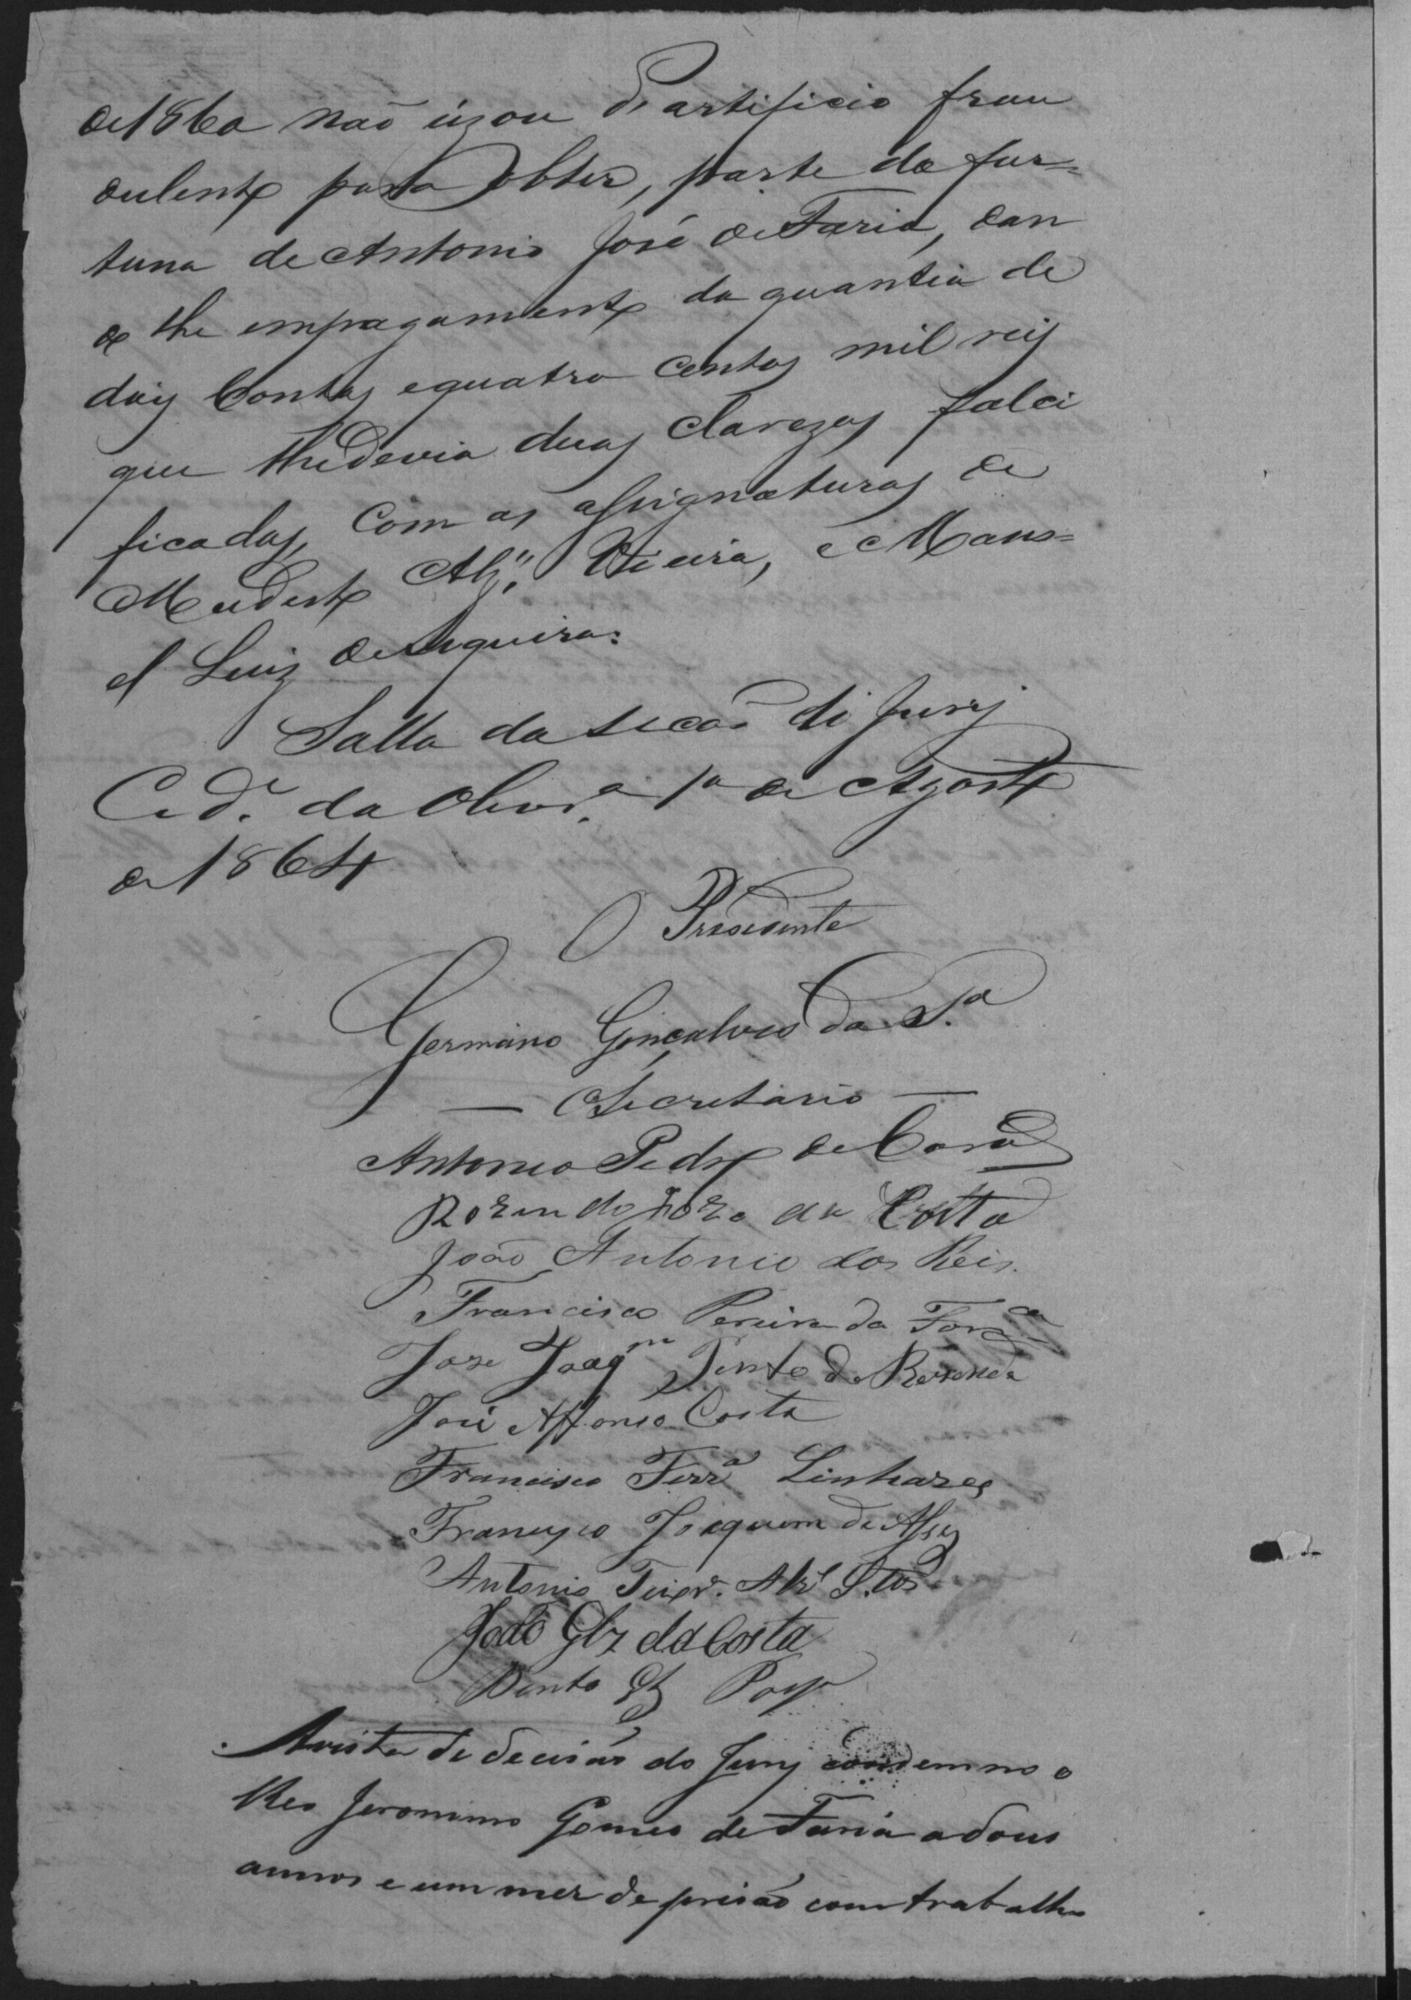 de 1860 não uzou de artificio frau
dulento para obter, parte da for=
tuna de Antonio José de Faria, dan
do lhe em pagamento da quantia de
dois Contos e quatro centos mil reis
que lhe devia duas Clarezas falci
ficadas, Com as assignaturas de
Modesto Vieira, e Mano=
el Luiz de Siqueira:
Salla da secão di Jury
Cid.e da Oliv.ra 1º de Agosto
de 1864
O Presidente
Germano Gonçalves da S.a
— Secretario —
Antonio Pedro de
Rozendo Joze da Costa
João Antonio dos Reis.
Francisco Pereira da
Joze Joaqm Pinto de Rezende
José Affonso Costa
Francisco Ferr.a Linhares
Francisco Joaquim de Assiz
Antonio Teixr.a S.tos
João Glz da Costa
Bento
Avista da decisão do Jury condemno o
Reo Jeronimo Gomes de Faria a dous
annos e um mez de prisão com trabalho